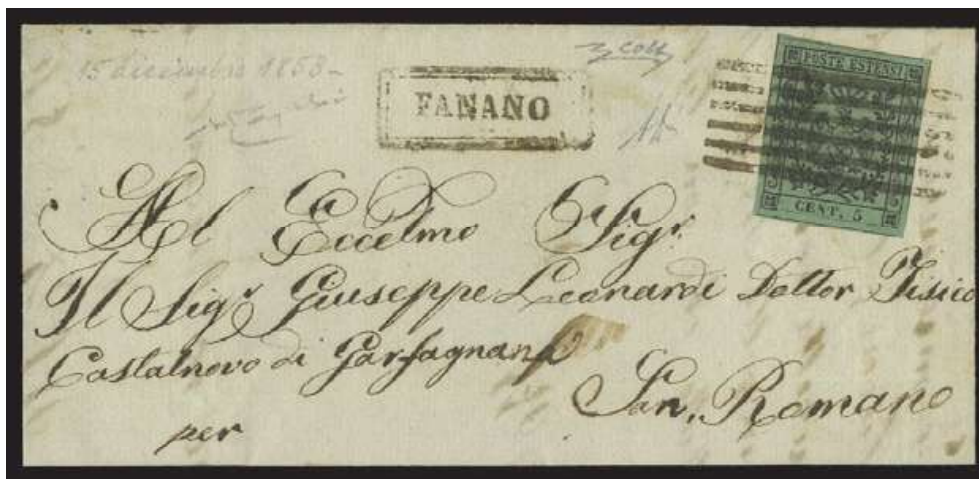 15 dicembre 1853-
FANANO
POSTE ESTENSI
CENT. 5
Al Eccelmo Sigr.
Il Sigr Giuseppe Leonardi Dottor Fisico
Castalnovo di Garfagnana
per San, Romano